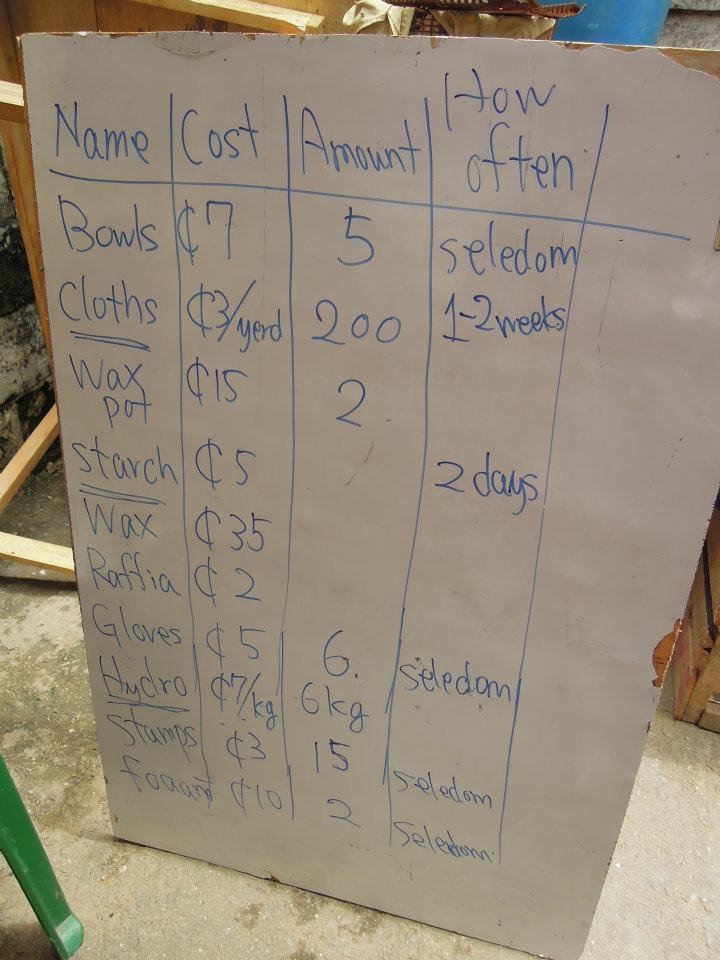 Name Cost Amount How often
Bowls ₵7 5 seledom
Cloths ₵3/yerd 200 1-2 weeks
Wax pot ₵15 2
starch ₵5 2 days
Wax ₵35
Raffia ₵2
Gloves ₵5 6 seledom
Hydro ₵7/kg 6kg
Stamps ₵3 15 seledom
₵10 2 seledom